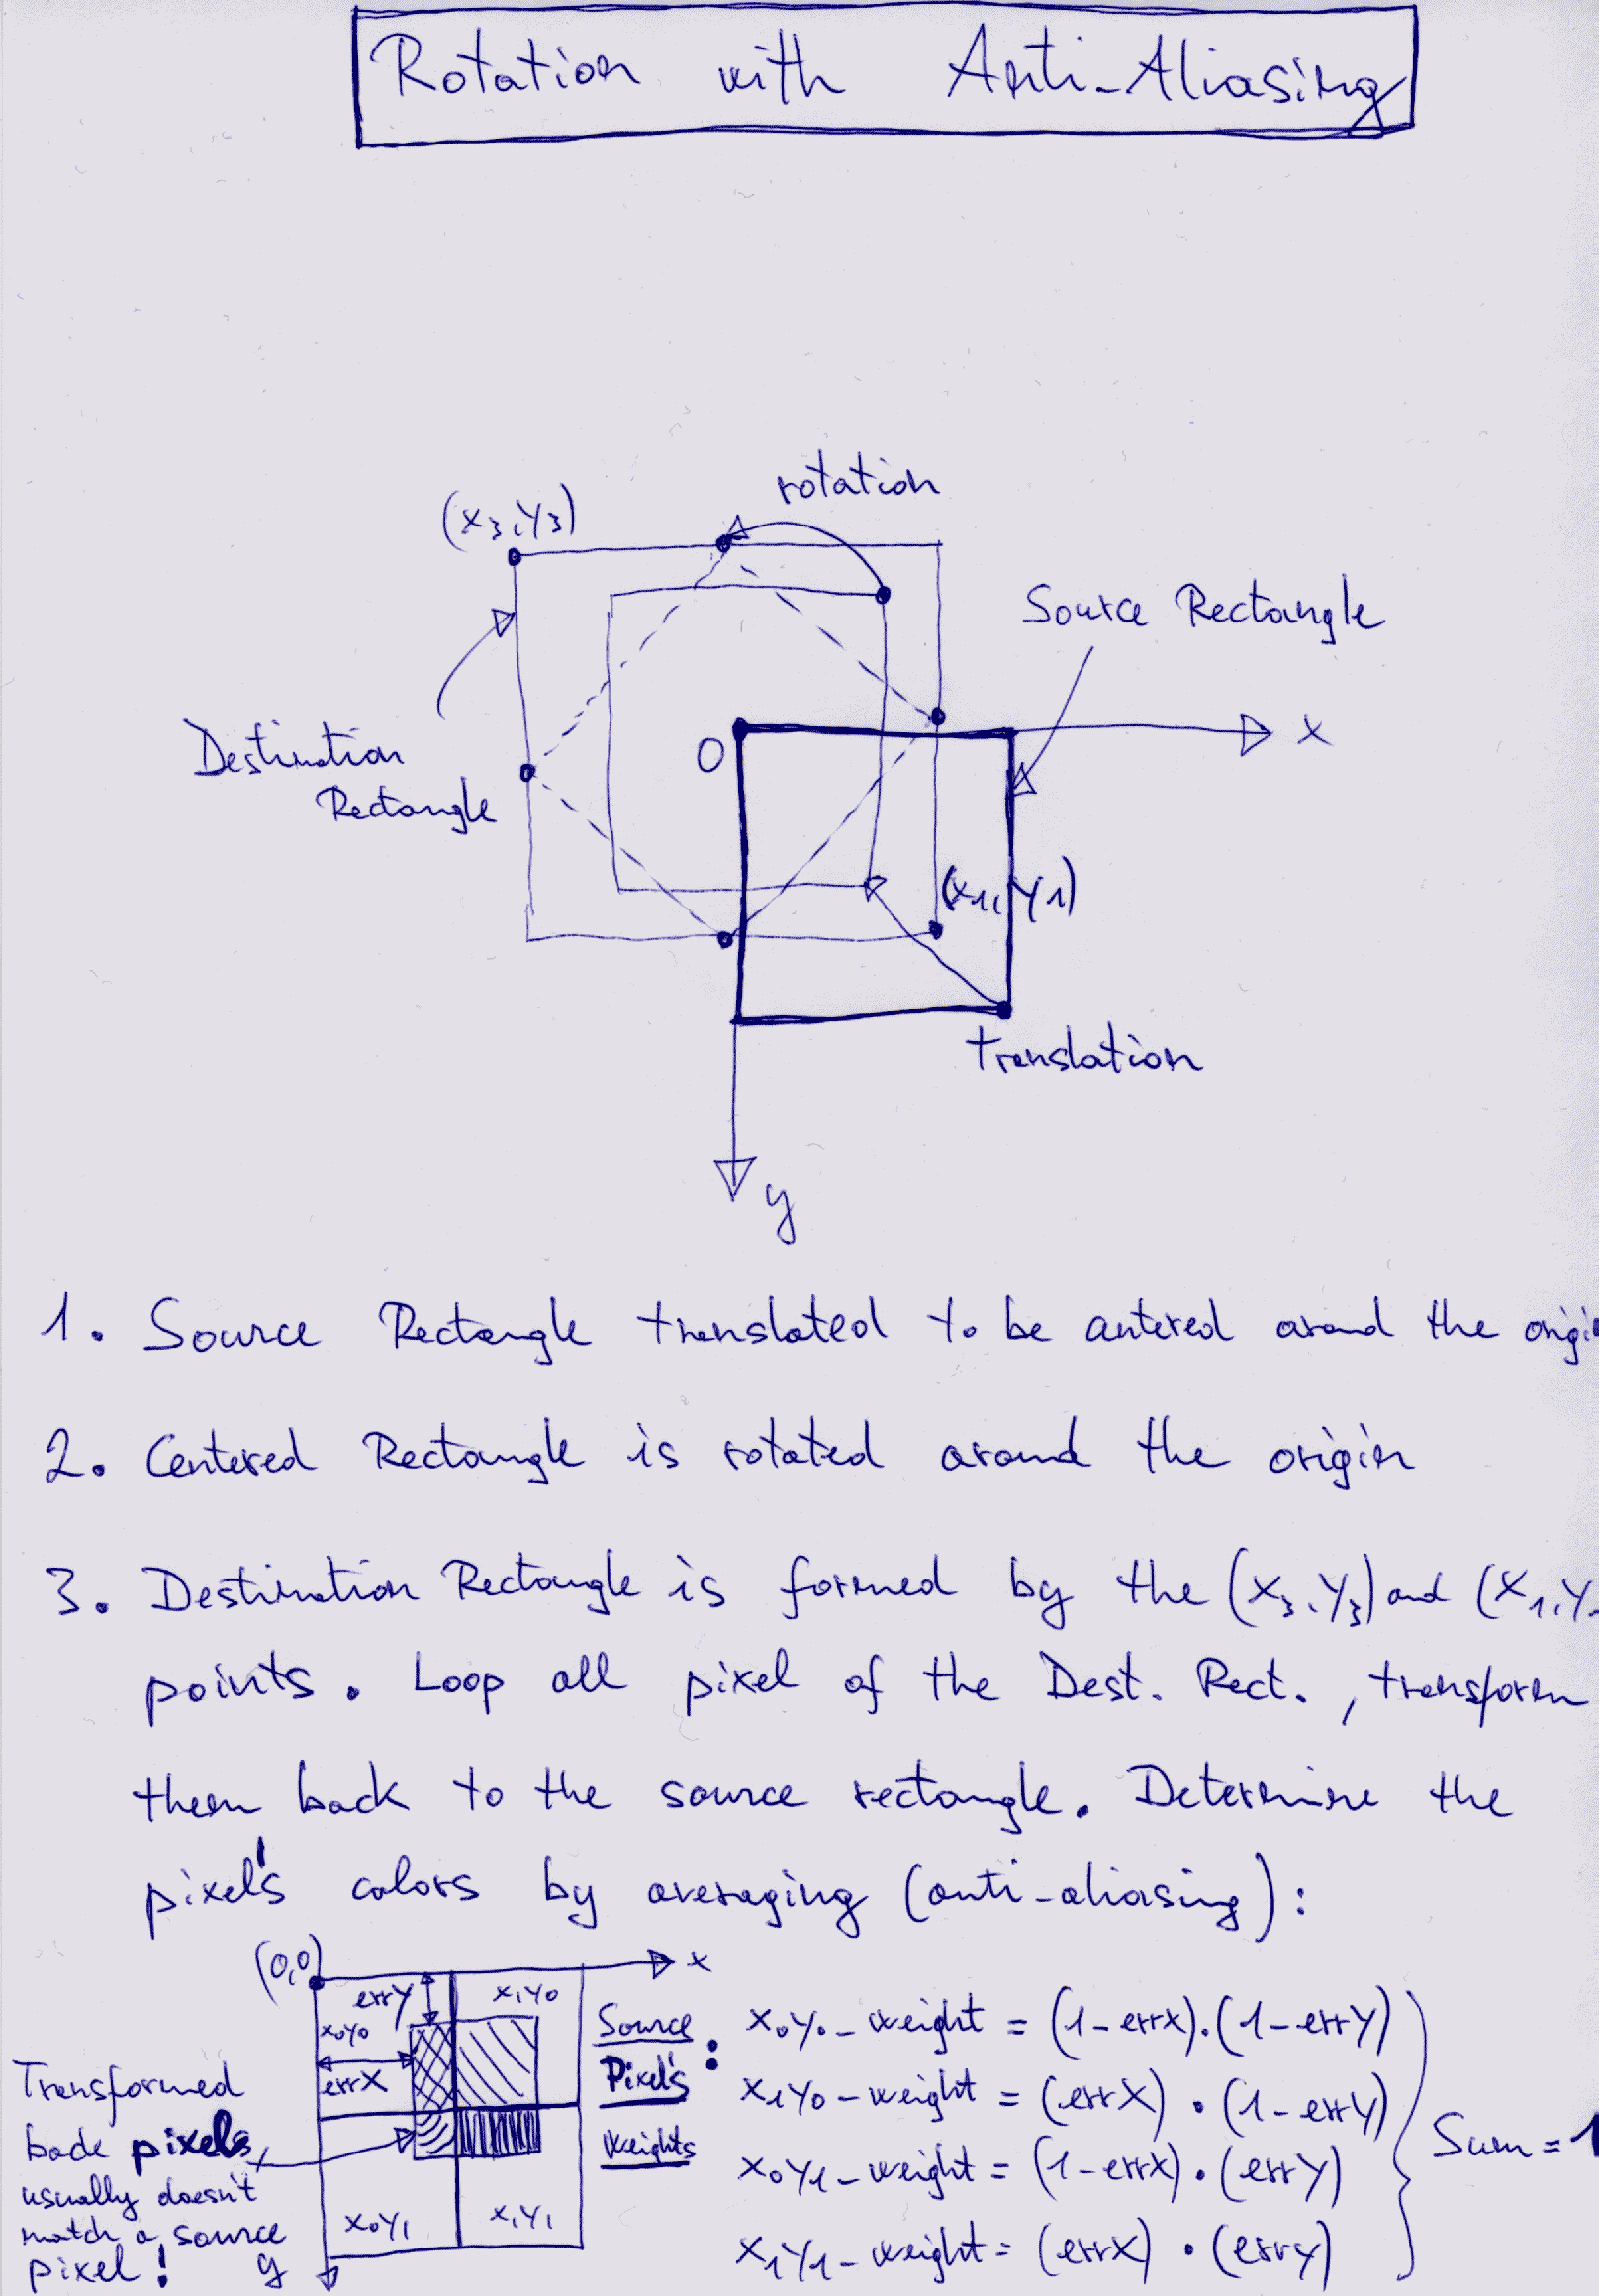 Rotation with Anti-Aliasing
rotation
(x3,y3)
Source Rectangle
x
O
Destination
Rectangle
(x1,y1)
translation
y
1. Source Rectangle translated to be centered around the origin
2. Centered Rectangle is rotated around the origin
3. Destination Rectangle is formed by the (x3,y3) and (x1,y1
points. Loop all pixel of the Dest. Rect., transform
them back to the source rectangle. Determine the
pixel's colors by averaging (anti-aliasing):
(0,0)
x
errY
x1y0
x0y0
errX
Transformed
back pixels
usually doesn't
match a source
pixel!
x0y1
x1y1
y
Source
Pixel's
weights
:
x0y0-weight = (1-errX).(1-errY)
x1y0-weight = (errX) . (1-errY)
x0y1-weight = (1-errX).(errY)
x1y1-weight = (errX) . (errY)
Sum = 1